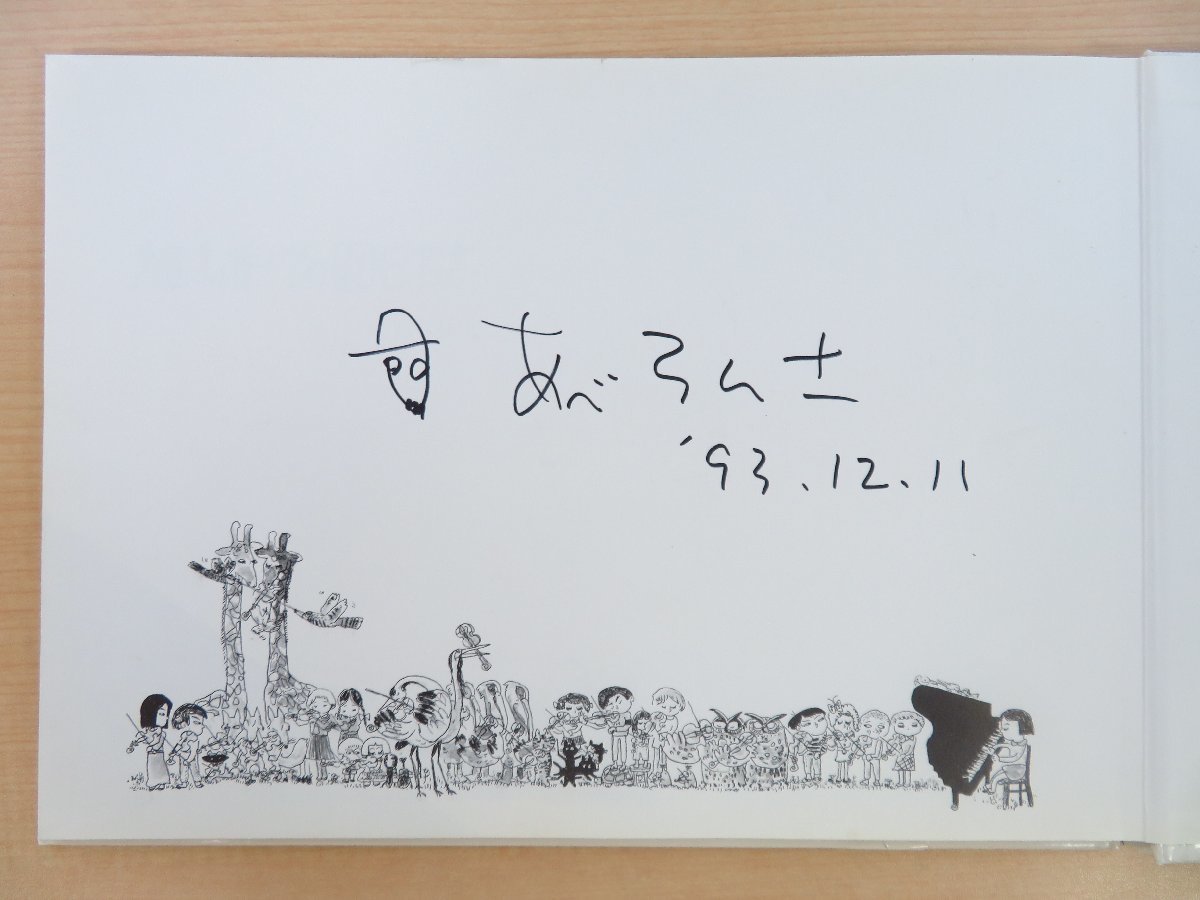 あべ弘士
'93.12.11